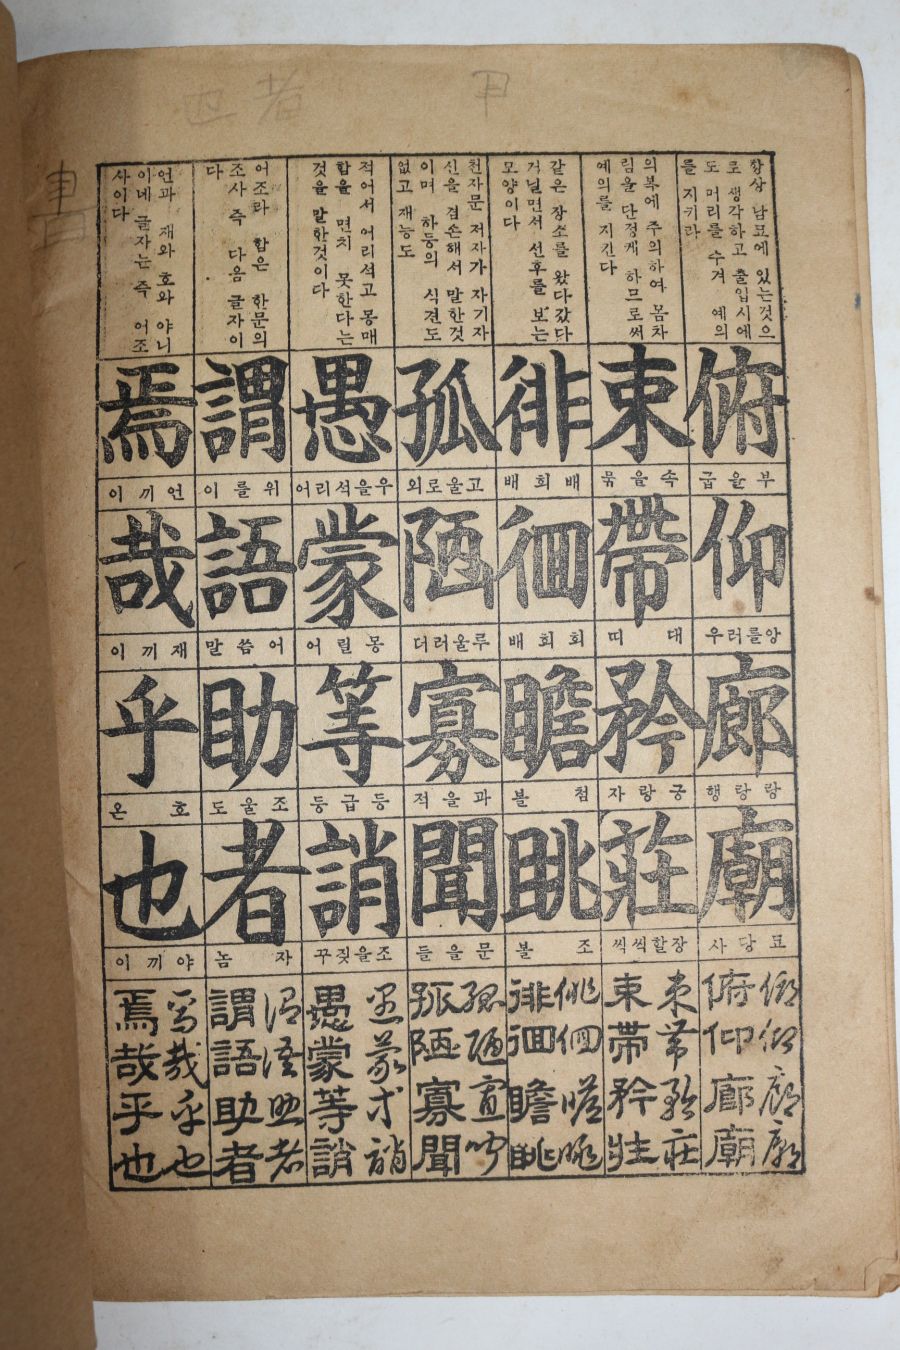 항상 남묘에 있는것으
로 생각하고 출입시에
도 머리를 수겨 예의
를 지키라
俯
굽을부
仰
우러를앙
廊
행랑랑
廟
사당묘
의복에 주의하여 몸차
림을 단정케 하므로써
예의를 지킨다
束
묶을속
帶
띠 대
矜
자랑긍
莊
씩씩할장
같은 장소를 왔다갔다
거닐면서 선후를 보는
모양이다
徘
배회배
徊
배회회
瞻
볼 첨
眺
볼 조
천자문 저자가 자기자
신을 겸손해서 말한것
이며 하등의 식견도
없고 재능도
孤
외로울고
陋
더러울루
寡
적을과
聞
들을문
적어서 어리석고 몽매
함을 면치 못한다는
것을 말한것이다
愚
어리석을우
蒙
어릴몽
等
등급등
誚
꾸짖을조
어조라 함은 한문의
조사 즉 다음 글자이
다
謂
이를위
語
말씀어
助
도울조
者
놈 자
언과 재와 호와 야니
이네 글자는즉 어조
사이다
焉
이끼언
哉
이끼재
乎
온 호
也
이끼야
俯仰廊廟
俯仰廊廟
束帶矜莊
束帶矜莊
徘徊瞻眺
徘徊瞻眺
孤陋寡聞
孤陋寡聞
愚蒙等誚
愚蒙等誚
謂語助者
謂語助者
焉哉乎也
焉哉乎也
也者